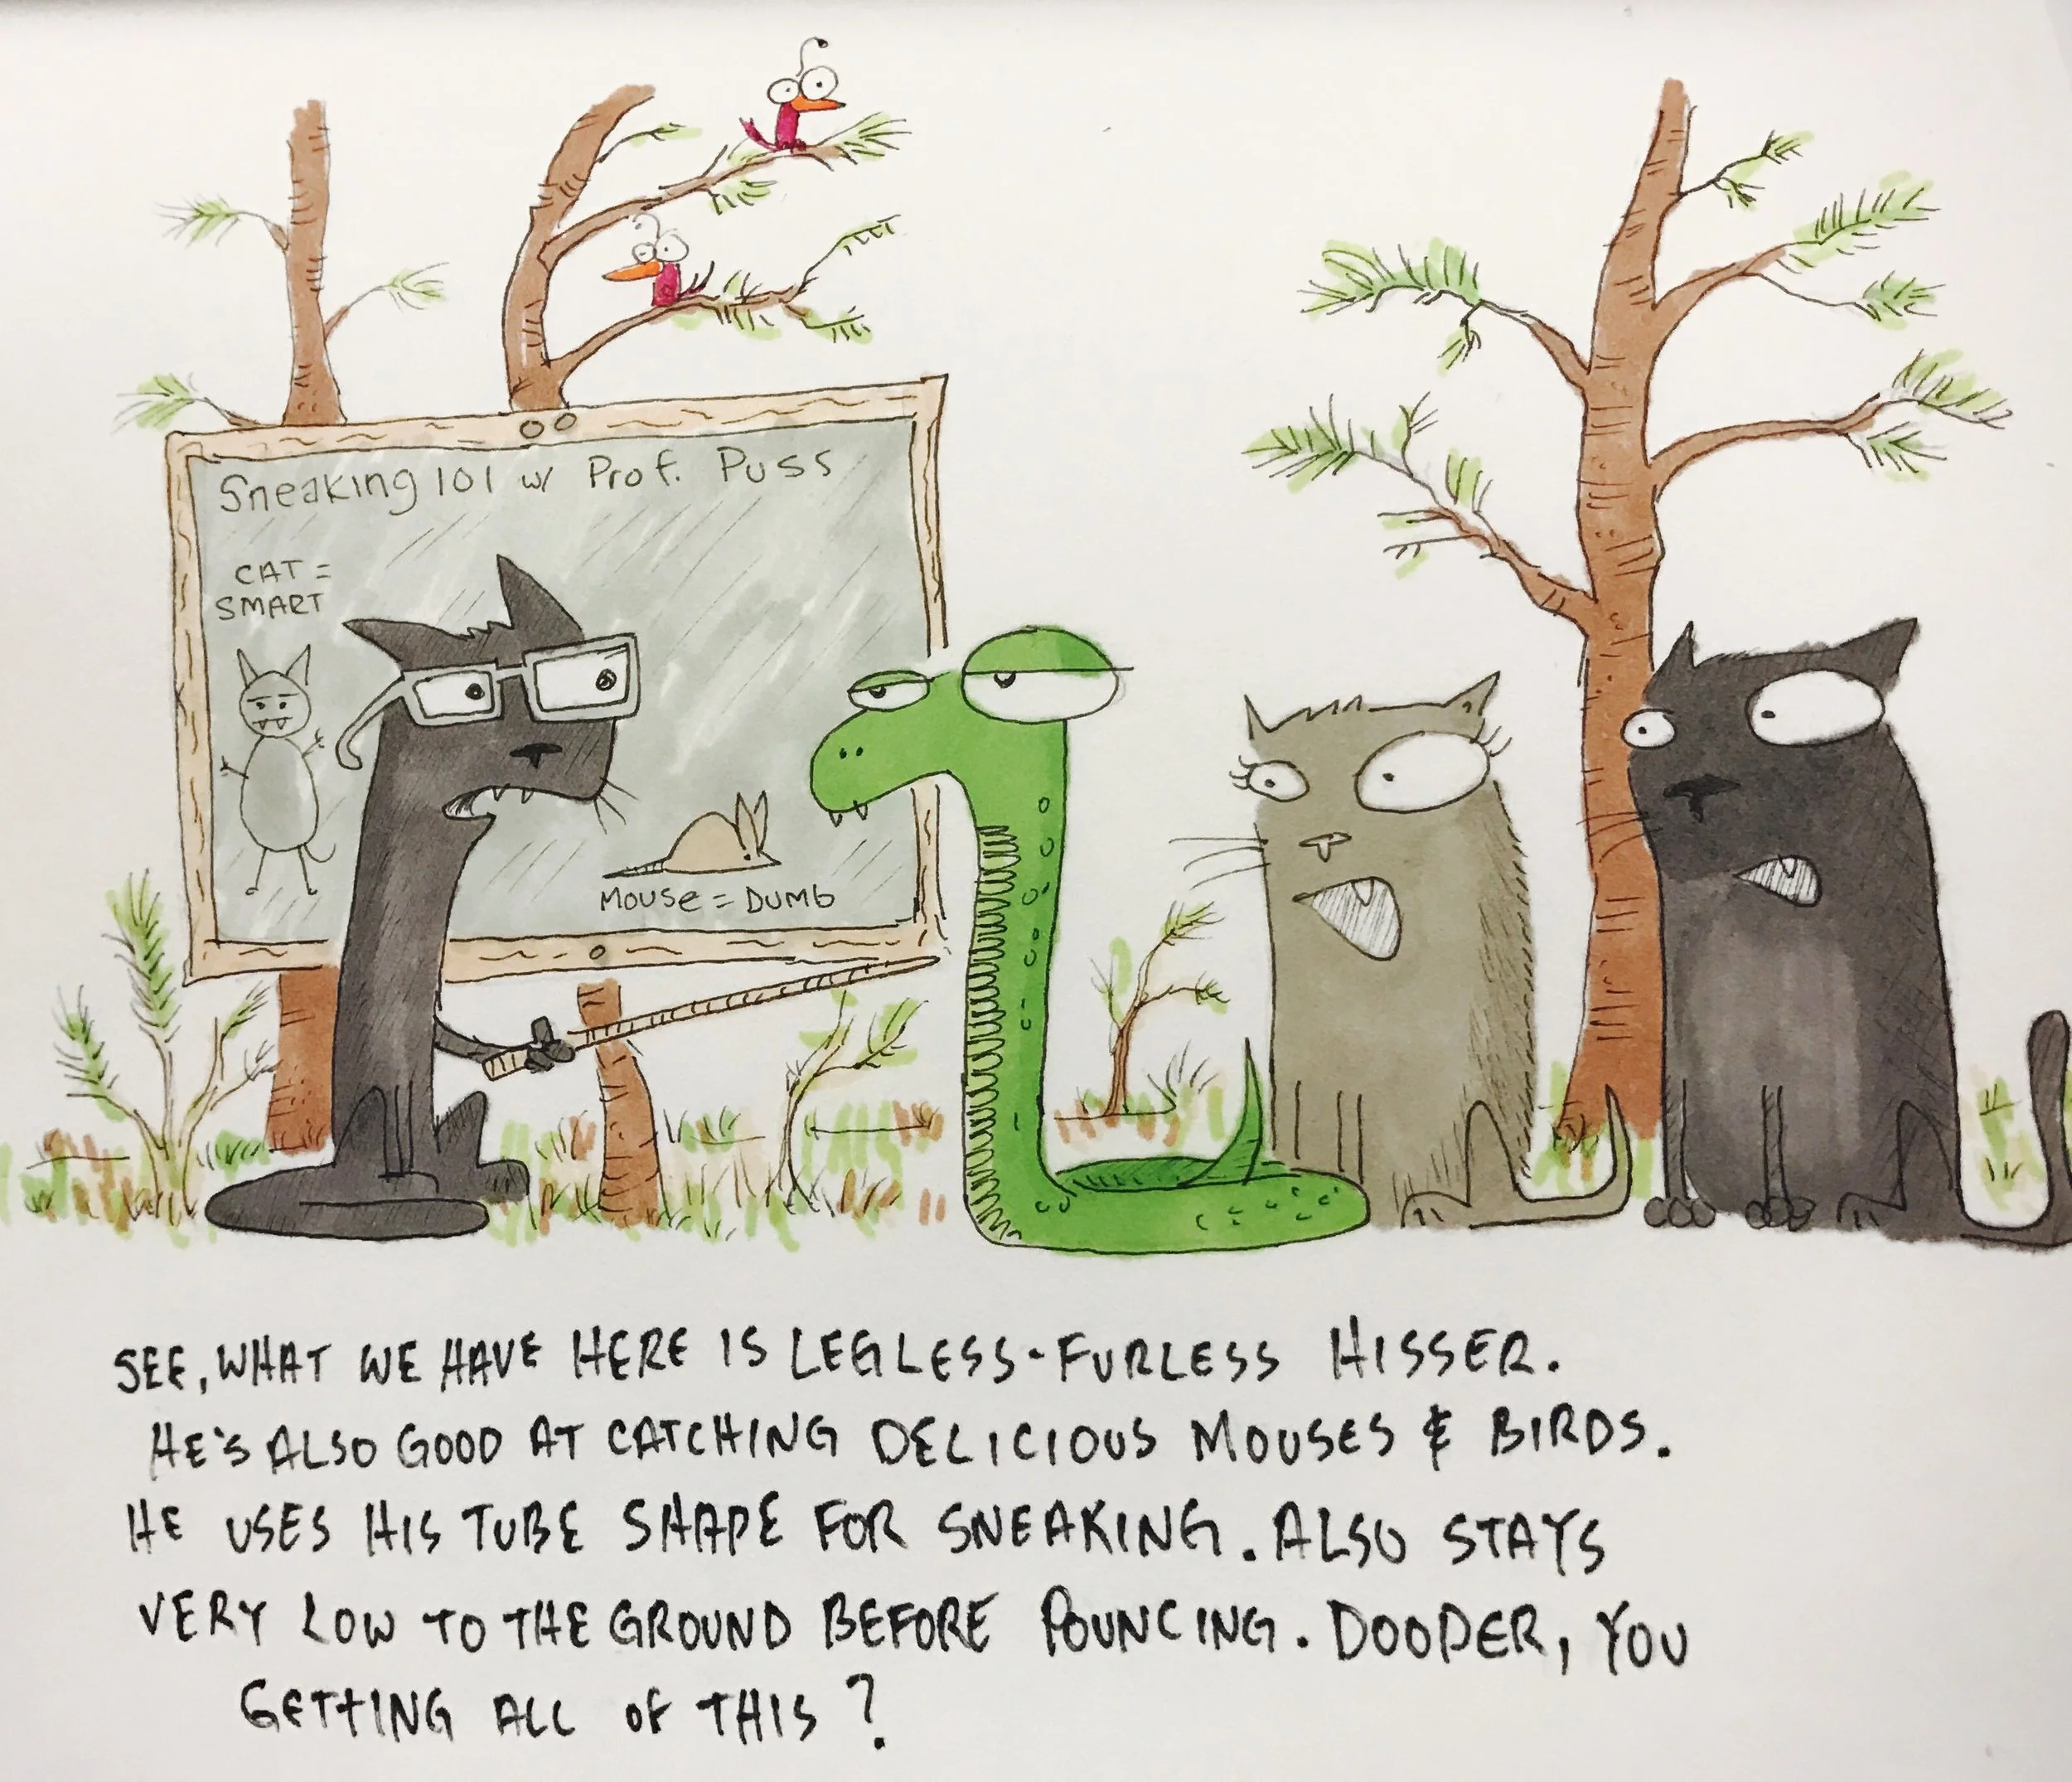 Sneaking 101 w/ Prof. Puss
CAT =
SMART
MOUSE = DUMB
SEE, WHAT WE HAVE HERE IS LEGLESS-FURLESS HISSER.
HE'S ALSO GOOD AT CATCHING DELICIOUS MOUSES & BIRDS.
HE USES HIS TUBE SHAPE FOR SNEAKING. ALSO STAYS
VERY LOW TO THE GROUND BEFORE POUNCING. DOODER, YOU
GETTING ALL OF THIS?